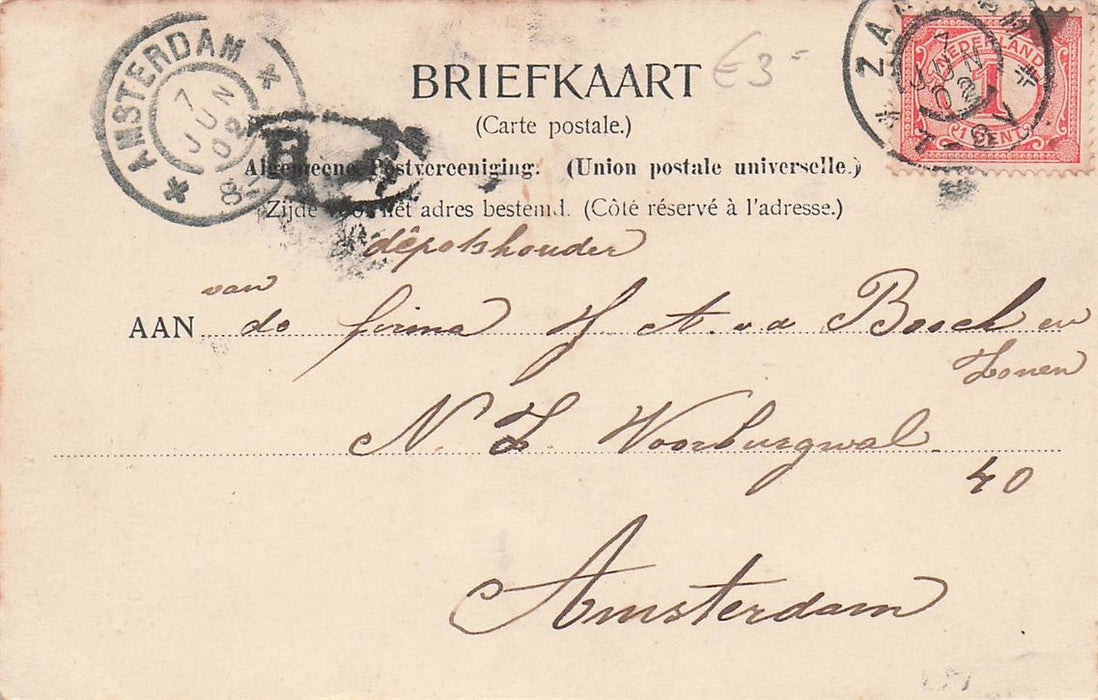 AMSTERDAM
7 JUN 02
ZA
NEDERLAND
1
CENT
BRIEFKAART
€ 3-
(Carte postale.)
Algemeene Postvereeniging. (Union postale universelle.)
Zijde voor het adres bestemd. (Côté réservé à l'adresse.)
dêpotshouder
van
AAN de firma H A. v. d Bosch en
Zonen
N. Z. Voorburgwal
40
Amsterdam